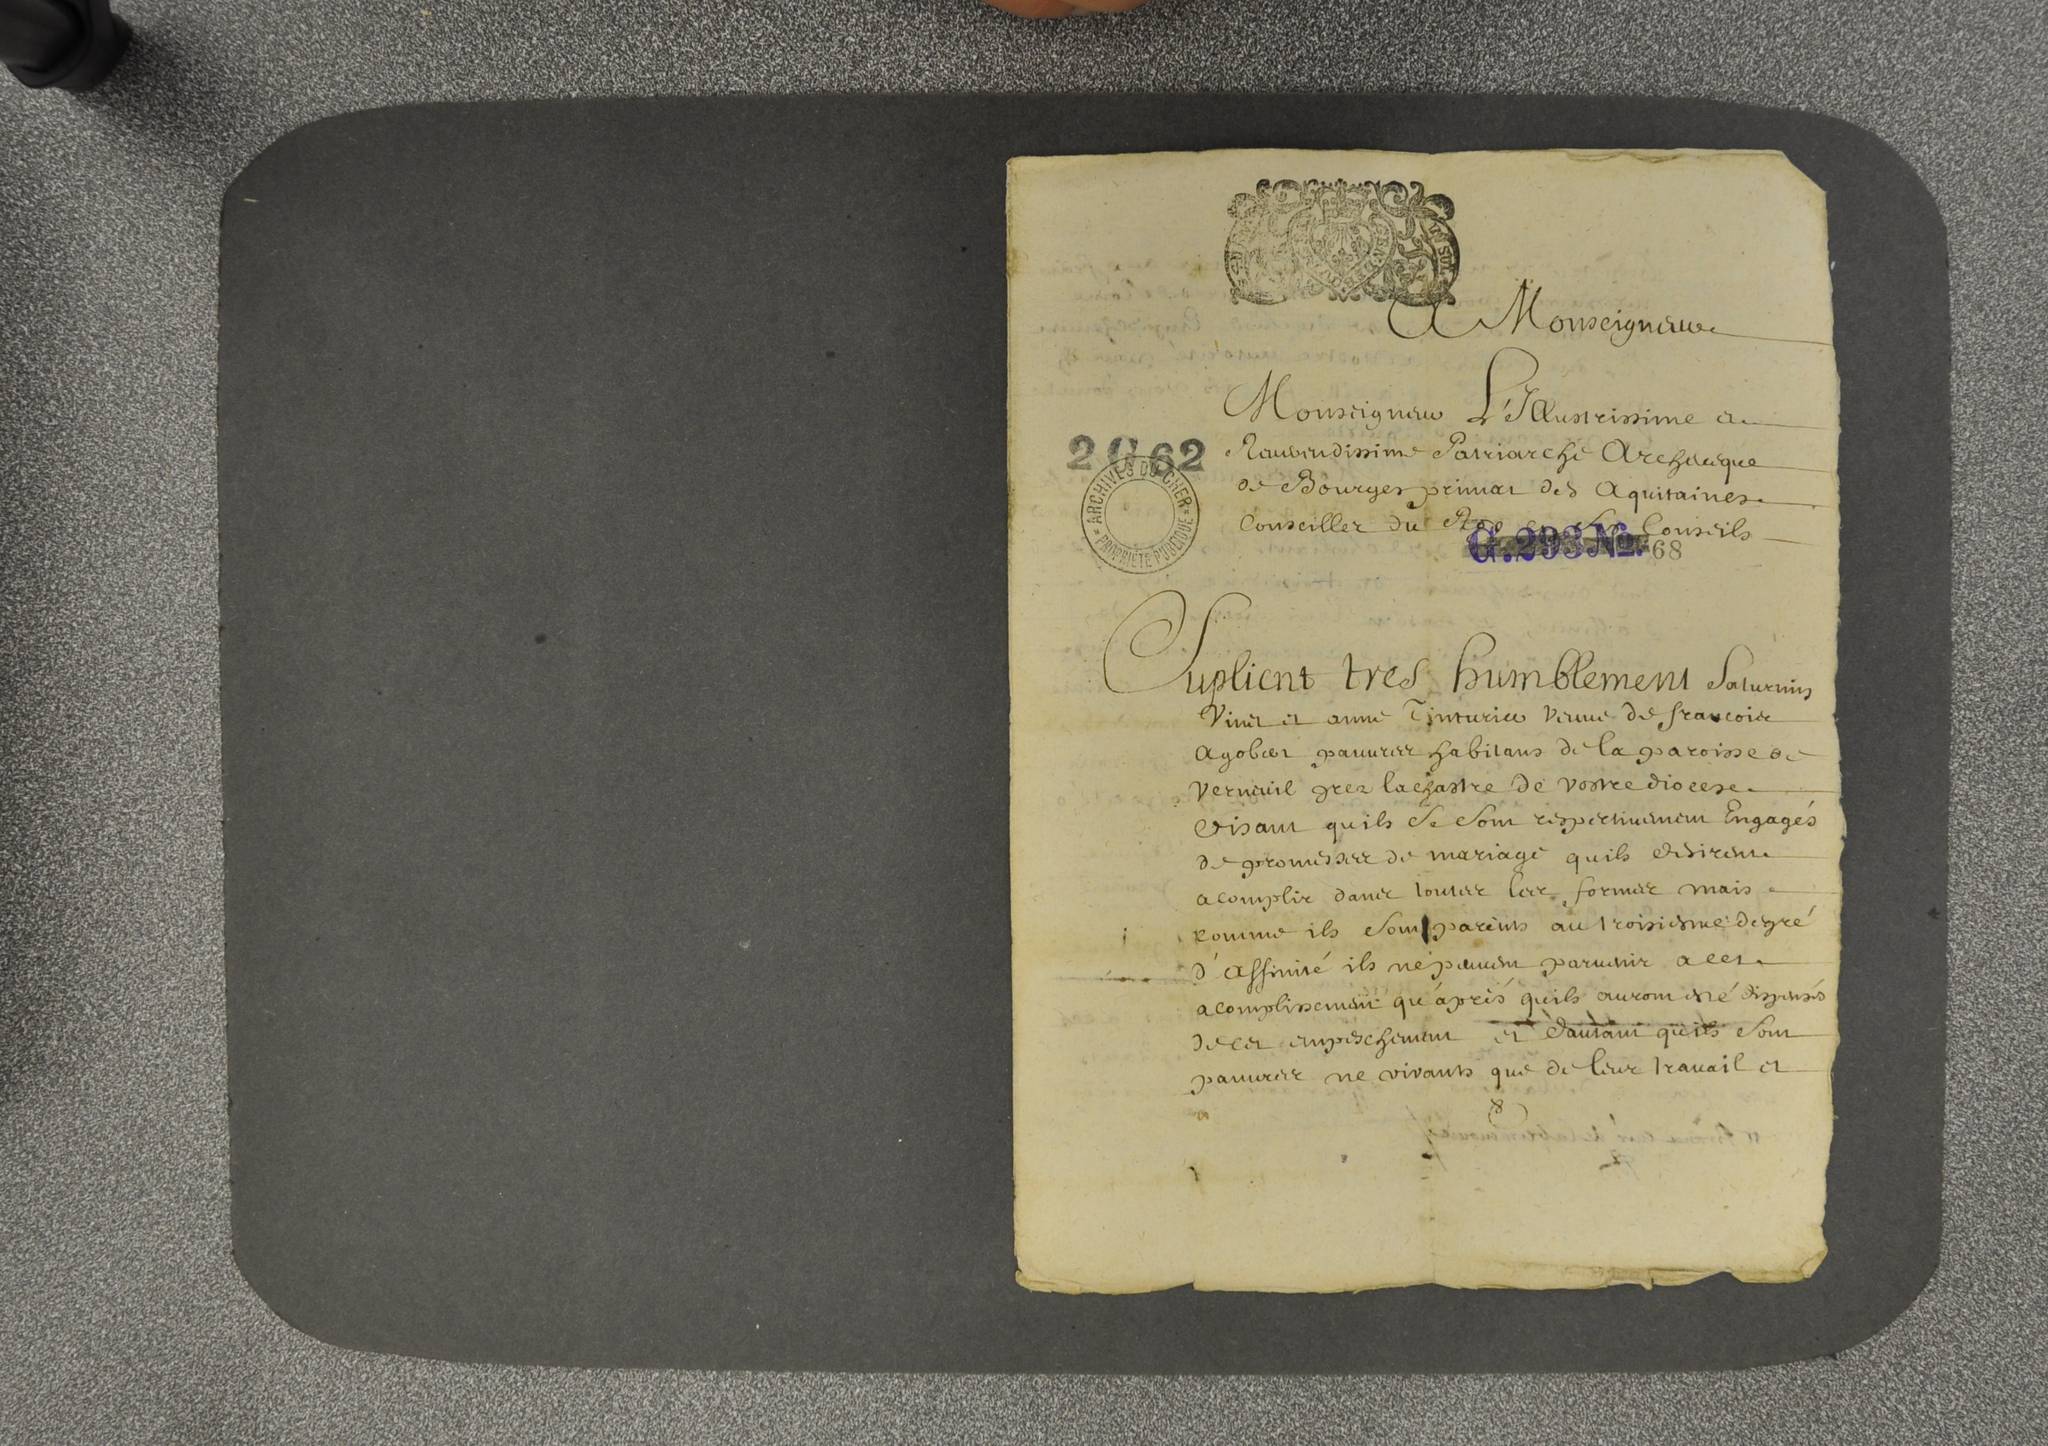 A Monseigneur
Monseigneur L'Illustrissime et
Reuerendissime Patriarche Archeueque
de Bourges primat des Aquitaines
Conseiller du Roy en Ses Conseils
2 G 62
ARCHIVES DU CHER
PROPRIÉTÉ PUBLIQUE
G. 293 No. 68
Suplient tres humblement Saturnin
Vinet et anne Tinturier veuue de francois
Agobert pauures habitans de la paroisse de
Verneuil prez lachastre de vostre diocese
disant quils se sont respectiuement Engagés
de promesses de mariage quils desirent
acomplir dans toutes les formes mais
comme ils sont parents au troisiesme degré
d'affinité ils ne peuuent paruenir a cet
acomplissement qu'aprés quils auront esté dispensés
de cet empeschement et dautant quils sont
pauures ne vivants que de leur trauail et